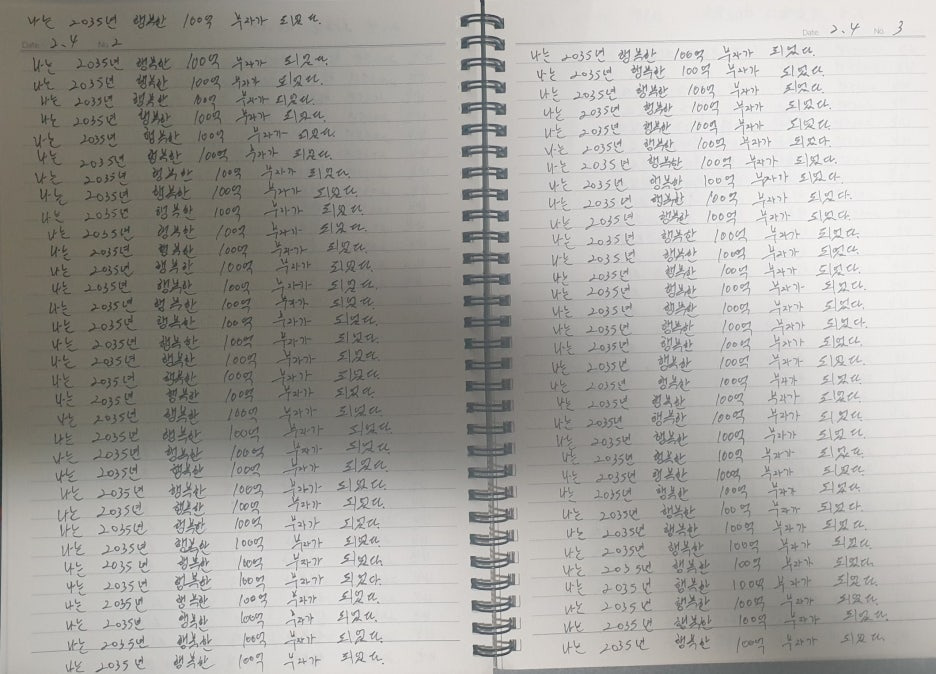 나는 2035년 행복한 100억 부자가 되었다.
Date 2.4 No 2
나는 2035년 행복한 100억 부자가 되었다.
나는 2035년 행복한 100억 부자가 되었다.
나는 2035년 행복한 100억 부자가 되었다.
나는 2035년 행복한 100억 부자가 되었다.
나는 2035년 행복한 100억 부자가 되었다.
나는 2035년 행복한 100억 부자가 되었다.
나는 2035년 행복한 100억 부자가 되었다.
나는 2035년 행복한 100억 부자가 되었다.
나는 2035년 행복한 100억 부자가 되었다.
나는 2035년 행복한 100억 부자가 되었다.
나는 2035년 행복한 100억 부자가 되었다.
나는 2035년 행복한 100억 부자가 되었다.
나는 2035년 행복한 100억 부자가 되었다.
나는 2035년 행복한 100억 부자가 되었다.
나는 2035년 행복한 100억 부자가 되었다.
나는 2035년 행복한 100억 부자가 되었다.
나는 2035년 행복한 100억 부자가 되었다.
나는 2035년 행복한 100억 부자가 되었다.
나는 2035년 행복한 100억 부자가 되었다.
나는 2035년 행복한 100억 부자가 되었다.
나는 2035년 행복한 100억 부자가 되었다.
나는 2035년 행복한 100억 부자가 되었다.
나는 2035년 행복한 100억 부자가 되었다.
나는 2035년 행복한 100억 부자가 되었다.
나는 2035년 행복한 100억 부자가 되었다.
나는 2035년 행복한 100억 부자가 되었다.
나는 2035년 행복한 100억 부자가 되었다.
나는 2035년 행복한 100억 부자가 되었다.
나는 2035년 행복한 100억 부자가 되었다.
나는 2035년 행복한 100억 부자가 되었다.
나는 2035년 행복한 100억 부자가 되었다.
나는 2035년 행복한 100억 부자가 되었다.
나는 2035년 행복한 100억 부자가 되었다.
Date 2.4 No 3
나는 2035년 행복한 100억 부자가 되었다.
나는 2035년 행복한 100억 부자가 되었다.
나는 2035년 행복한 100억 부자가 되었다.
나는 2035년 행복한 100억 부자가 되었다.
나는 2035년 행복한 100억 부자가 되었다.
나는 2035년 행복한 100억 부자가 되었다.
나는 2035년 행복한 100억 부자가 되었다.
나는 2035년 행복한 100억 부자가 되었다.
나는 2035년 행복한 100억 부자가 되었다.
나는 2035년 행복한 100억 부자가 되었다.
나는 2035년 행복한 100억 부자가 되었다.
나는 2035년 행복한 100억 부자가 되었다.
나는 2035년 행복한 100억 부자가 되었다.
나는 2035년 행복한 100억 부자가 되었다.
나는 2035년 행복한 100억 부자가 되었다.
나는 2035년 행복한 100억 부자가 되었다.
나는 2035년 행복한 100억 부자가 되었다.
나는 2035년 행복한 100억 부자가 되었다.
나는 2035년 행복한 100억 부자가 되었다.
나는 2035년 행복한 100억 부자가 되었다.
나는 2035년 행복한 100억 부자가 되었다.
나는 2035년 행복한 100억 부자가 되었다.
나는 2035년 행복한 100억 부자가 되었다.
나는 2035년 행복한 100억 부자가 되었다.
나는 2035년 행복한 100억 부자가 되었다.
나는 2035년 행복한 100억 부자가 되었다.
나는 2035년 행복한 100억 부자가 되었다.
나는 2035년 행복한 100억 부자가 되었다.
나는 2035년 행복한 100억 부자가 되었다.
나는 2035년 행복한 100억 부자가 되었다.
나는 2035년 행복한 100억 부자가 되었다.
나는 2035년 행복한 100억 부자가 되었다.
나는 2035년 행복한 100억 부자가 되었다.